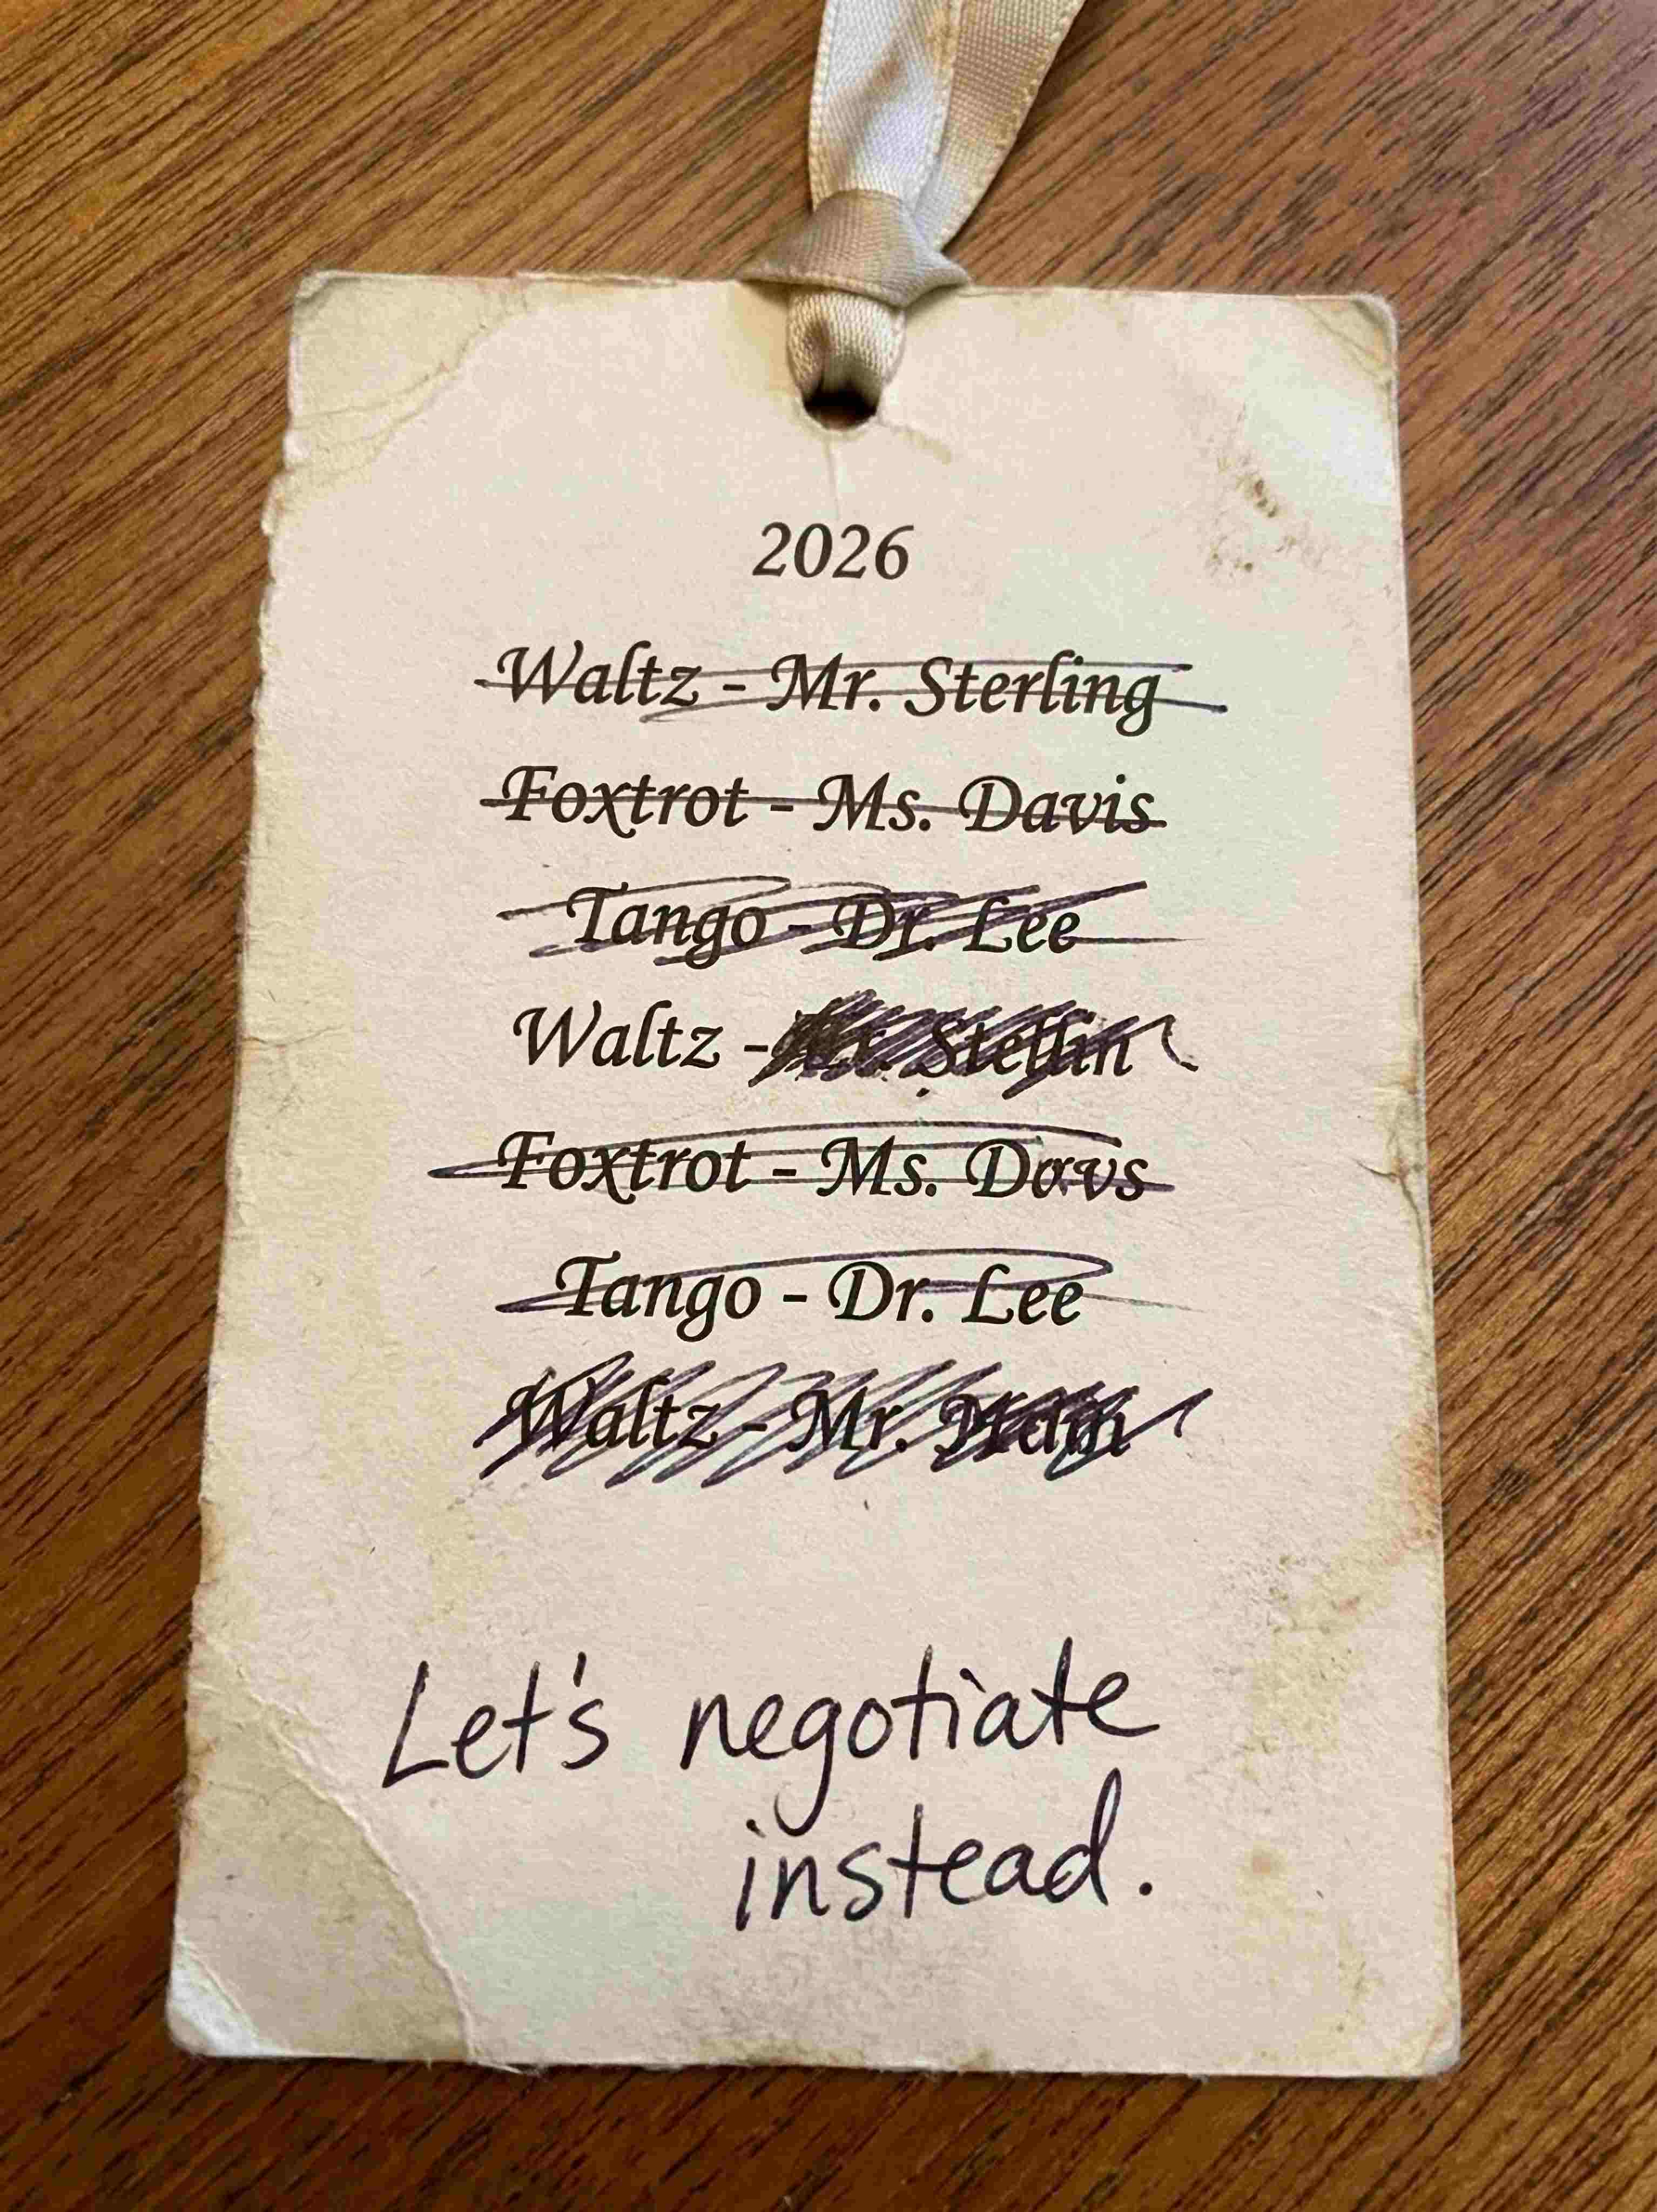 2026
Waltz - Mr. Sterling
Foxtrot - Ms. Davis
Tango - Dr. Lee
Waltz -
Foxtrot - Ms. Davs
Tango - Dr. Lee
Waltz - Mr.
Let's negotiate
instead.